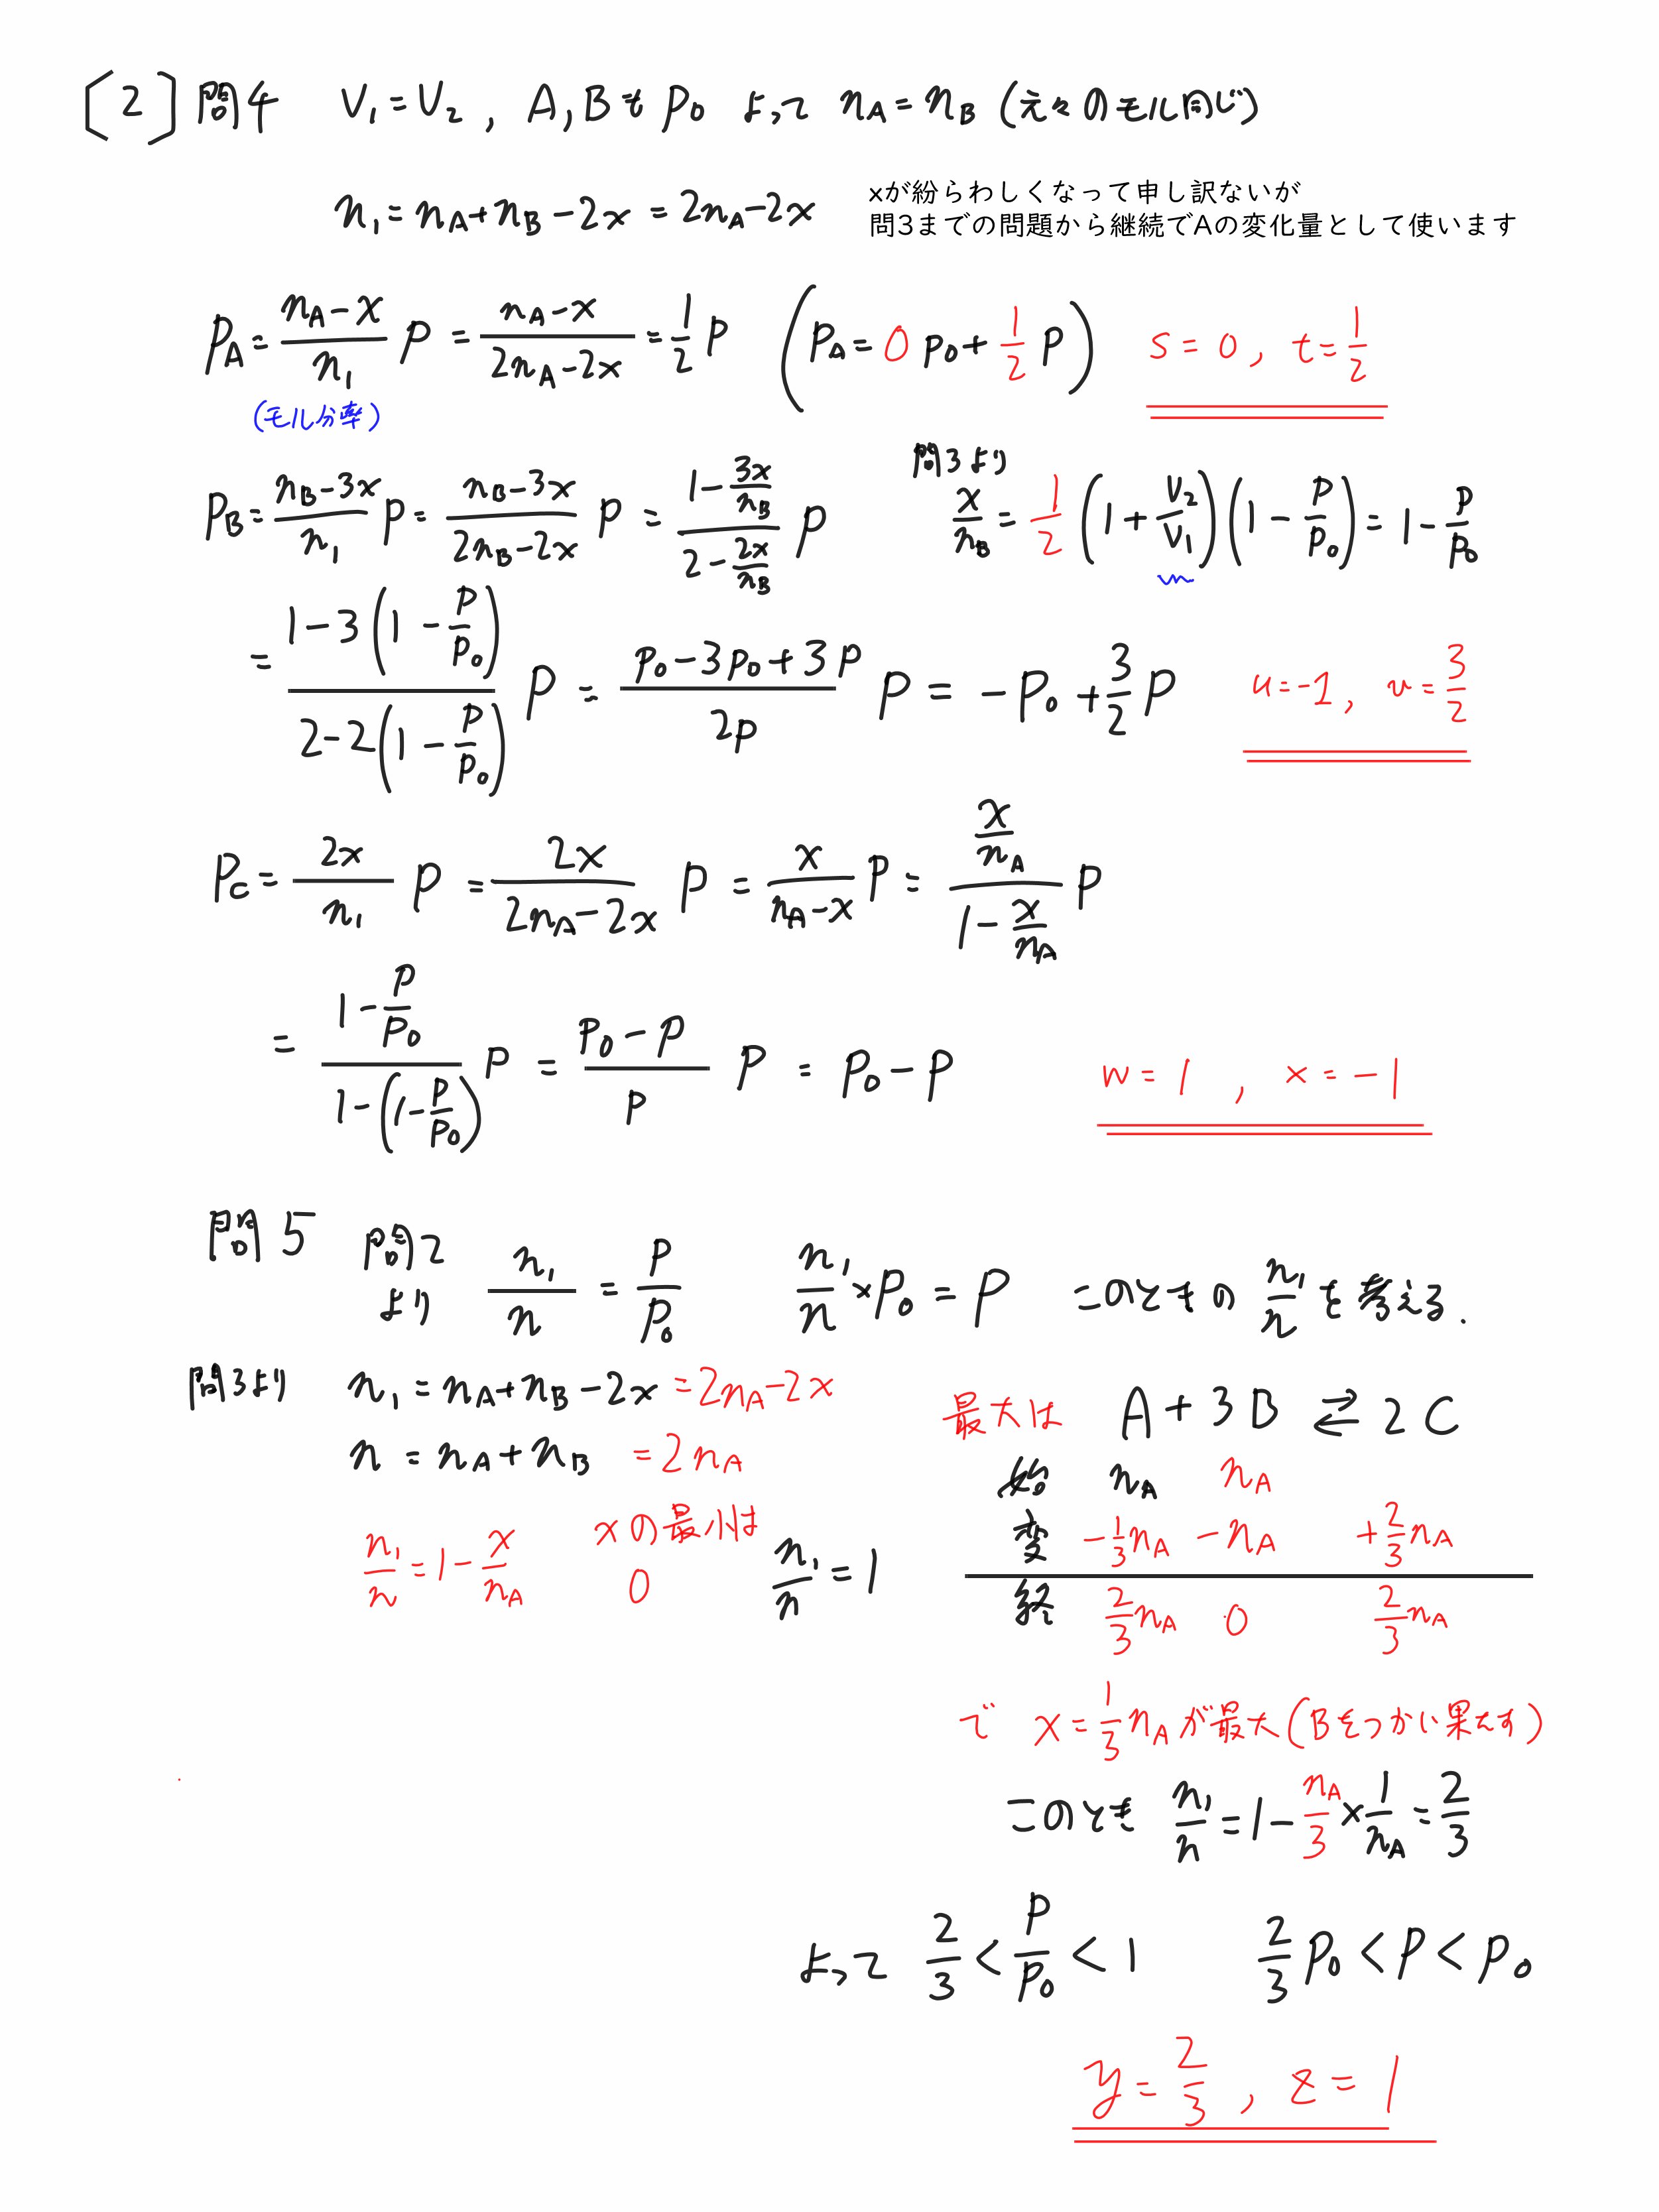 〔2〕問4 V₁=V₂, A,Bも p₀ よって n_A=n_B (元々のモル同じ)
n₁=n_A+n_B-2x=2n_A-2x
xが紛らわしくなって申し訳ないが
問3までの問題から継続でAの変化量として使います
p_A=(n_A-x)/n₁ p=(n_A-x)/(2n_A-2x)=1/2 p (p_A=0p₀+1/2 p) s=0, t=1/2
(モル分率)
p_B=(n_B-3x)/n₁ p=(n_B-3x)/(2n_B-2x) p=(1-3x/n_B)/(2-2x/n_B) p
問3より
x/n_B=1/2(1+V₂/V₁)(1-p/p₀)=1-p/p₀
=(1-3(1-p/p₀))/(2-2(1-p/p₀)) p=(p₀-3p₀+3p)/2p p=-p₀+3/2 p u=-1, v=3/2
p_C=2x/n₁ p=2x/(2n_A-2x) p=x/(n_A-x) p=(x/n_A)/(1-x/n_A) p
=(1-p/p₀)/(1-(1-p/p₀)) p=(p₀-p)/p p=p₀-p w=1, x=-1
問5 問2より n₁/n=p/p₀ n₁/n×p₀=p このときの n₁/n を考える.
問3より n₁=n_A+n_B-2x=2n_A-2x
n=n_A+n_B=2n_A
n₁/n=1-x/n_A xの最小は0 n₁/n=1
最大は A+3B⇄2C
始 n_A n_A
変 -1/3n_A -n_A +2/3n_A
終 2/3n_A 0 2/3n_A
で x=1/3n_Aが最大(Bをつかい果たす)
このとき n₁/n=1-n_A/3×1/n_A=2/3
よって 2/3<p/p₀<1 2/3p₀<p<p₀
y=2/3, z=1